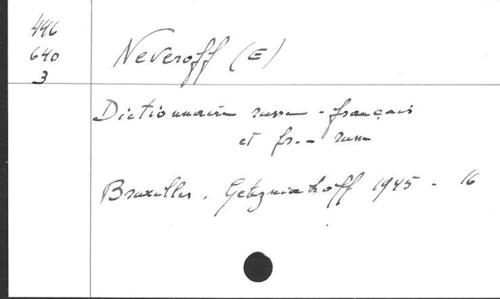 446
640
3
Neveroff (E)
Dictionnaire russe - français
et fr. - russe
Bruxelles. 1945 - 16